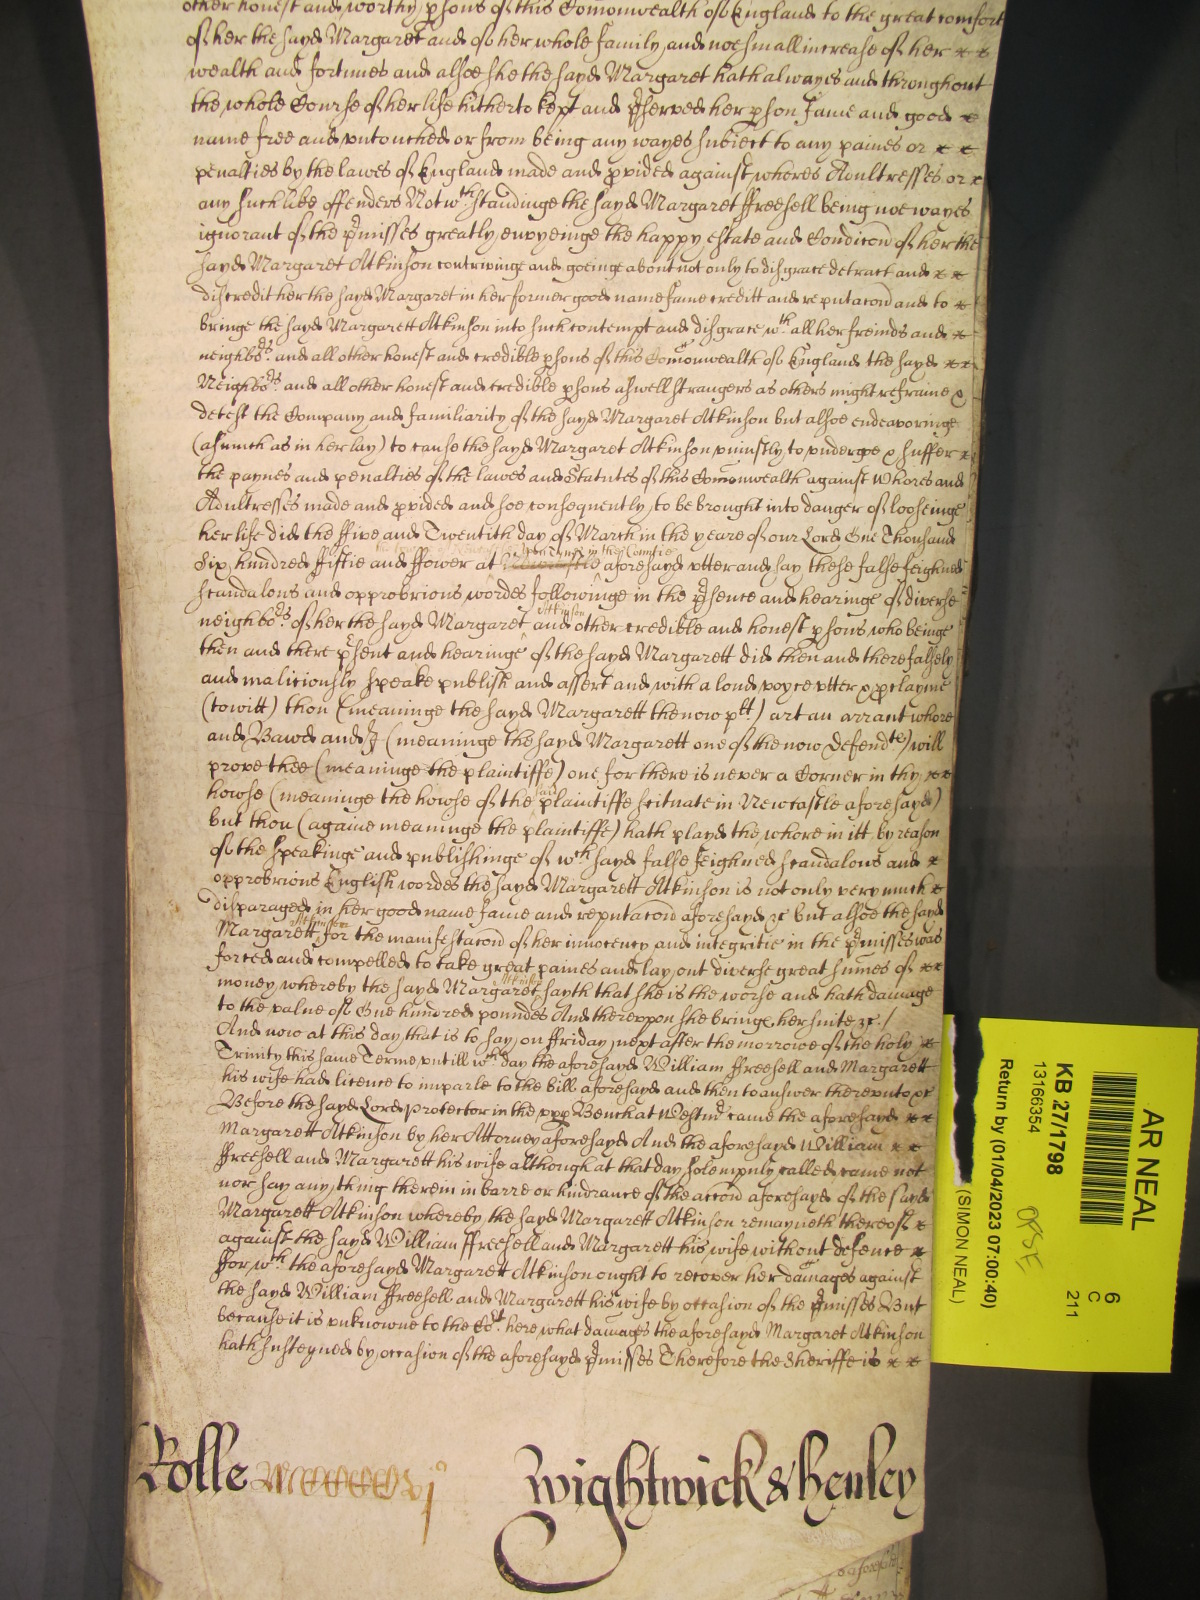 other honest and worthy psons of this Comonwealth of England to the great comfort
of her the sayd Margaret and of her whole family and noe small increase of her
wealth and fortunes and alsoe she the sayd Margaret hath alwayes and throughout
the whole Course of her life hitherto kept and pserved her pson fame and good
name free and untouched or from being any wayes subiect to any paines or
penalties by the lawes of England made and pvided against whores Adultresses or
any such like offenders Notwthstandinge the sayd Margaret ffreesell being noe wayes
ignorant of the pmisses greatly envyeinge the happy estate and Condicon of her the
sayd Margaret Atkinson contriwinge and goeinge about not only to disgrace detract and
discredit her the sayd Margaret in her former good name fame creditt and reputacon and to
bringe the sayd Margarett Atkinson into such contempt and disgrace wth all her freinds and
neighbors and all other honest and credible psons of this Comonwealth of England the sayd
Neighbors and all other honest and credible psons aswell strangers as others might refraine &
detest the Company and familiarity of the sayd Margaret Atkinson but alsoe endeavoringe
(asmuch as in her lay) to cause the sayd Margaret Atkinson uniustly to undergoe & suffer
the paynes and penalties of the lawes and Statutes of this Comonwealth against Whores and
Adultresses made and pvided and soe consequently to be brought into danger of looseinge
her life did the ffive and Twentith day of March in the yeare of our Lord One Thousand
Six hundred ffiftie and ffower at upon Tyne in the Countie aforesayd utter and say these false feighned
scandalous and opprobrious wordes followinge in the psence and hearinge of diverse
neighbors of her the sayd Margaret Atkinson and other credible and honest psons who beinge
then and there psent and hearinge of the sayd Margarett did then and there falsely
and maliciously speake publish and assert and with a loud voyce utter & pclayme
(to witt) thou (meaninge the sayd Margarett the now plt) art an arrant whore
and Bawd and I (meaninge the sayd Margarett one of the now Defendts) will
prove thee (meaninge the plaintiffe) one for there is never a Corner in thy
howse (meaninge the howse of the said plaintiffe scituate in Newcastle aforesayd)
but thou (againe meaninge the plaintiffe) hath playd the whore in itt by reason
of the speakinge and publishinge of wch sayd false feighned scandalous and
opprobrious English wordes the sayd Margarett Atkinson is not only very much
disparaged in her good name fame and reputacon aforesayd &c but alsoe the sayd
Margarett Atkinson for the manifestacon of her innocency and integritie in the pmisses was
forced and compelled to take great paines and lay out diverse great sumes of
money whereby the sayd Margaret Atkinson sayth that she is the worse and hath damage
to the value of One hundred poundes And thereupon she bringe her suite &c /
And now at this day that is to say on ffriday next after the morrowe of the holy
Trinity this same Terme untill wch day the aforesayd William ffreesell and Margarett
his wife had licence to imparle to the bill aforesayd and then to answer thereunto &c
Before the sayd Lord Protector in the upp Bench at Westmr came the aforesayd
Margarett Atkinson by her Attorney aforesayd And the aforesayd William
ffreesell and Margarett his wife although at that day solempnly called came not
nor say any thing therein in barre or hindrance of the accon aforesayd of the sayd
Margarett Atkinson whereby the sayd Margarett Atkinson remayneth thereof
against the sayd William ffreesell and Margarett his wife without defence
ffor wch the aforesayd Margarett Atkinson ought to recover her damages against
the sayd William ffreesell and Margarett his wife by occasion of the pmisses But
because it is unknowne to the Cort here what damages the aforesayd Margaret Atkinson
hath susteyned by occasion of the aforesayd pmisses Therefore the Sheriffe is
Rolle
Wightwick & Henley
aforesayd
AR NEAL
KB 27/1798
13166354
Return by (01/04/2023 07:00:40)
(SIMON NEAL)
6
C
211